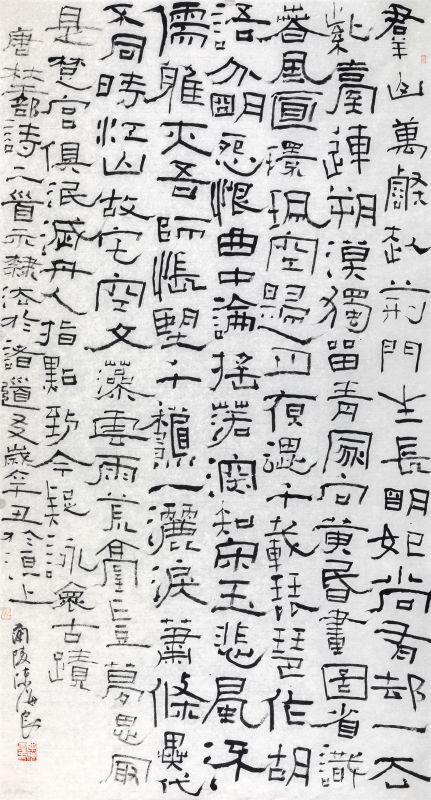 群山萬壑赴荊門生長明妃尚有邨一去
紫臺連朔漠獨留青冢向黄昏畫圖省識
春風面環珮空歸月夜魂千載琵琶作胡
語分明怨恨曲中論搖落深知宋玉悲風流
儒雅亦吾師悵望千穐一灑淚蕭條異代
不同時江山故宅空文藻雲雨荒臺豈夢思最
是楚宮俱泯滅舟人指點到今疑詠懷古蹟
唐杜甫詩二首示隸法於諸道友歲辛丑於滬上
蘭陵海良